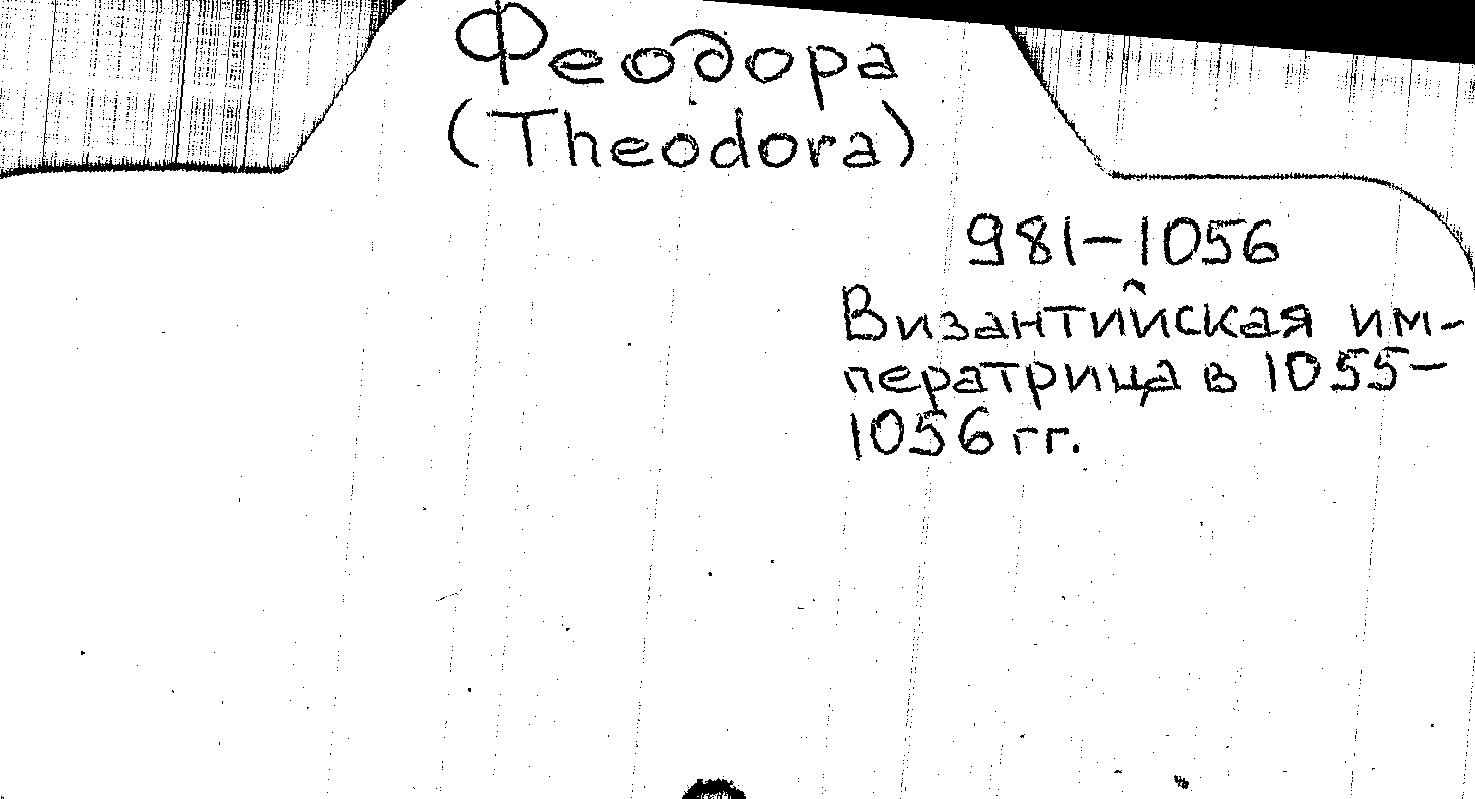 Феодора
(Theodora)
981-1056
Византийская им-
ператрица в 1055-
1056 гг.